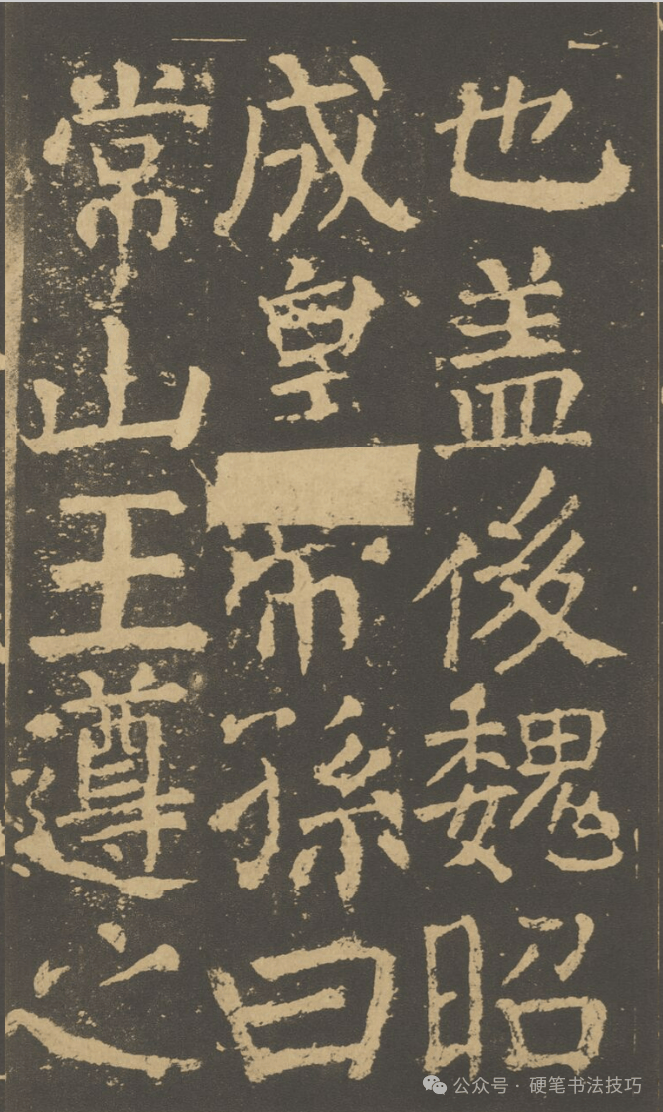 也盖後魏昭
成皇帝孫曰
常山王遵之
公众号·硬笔书法技巧